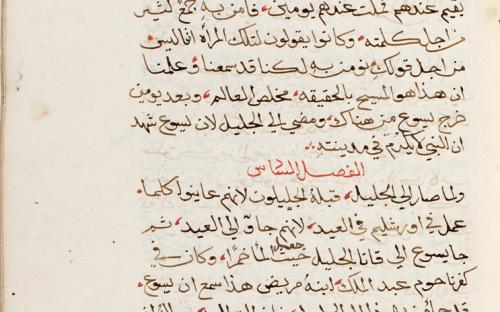 يقيم عندهم فمكث عندهم يومين، فامن به جمع كثير
من اجل كلمته، وكانوا يقولون لتلك المرأة اننا ليس
من اجل قولك نومن به لكنا قد سمعنا وعلمنا
ان هذا هو المسيح بالحقيقه، مخلص العالم، وبعد يومين
خرج يسوع من هناك، ومضي الي الجليل لان يسوع شهد
ان النبي لا يكرم في مدينته
الفصل السادس
ولما صار الي الجليل، قبله الجليليون لانهم عاينوا كلما
عمل في اورشليم في العيد، لانهم جاوا الي العيد، ثم
جا يسوع الي قانا الجليل حيث جعل الما خمرا، وكان في
كفرناحوم عبد الملك ابنه مريض هذا سمع ان يسوع